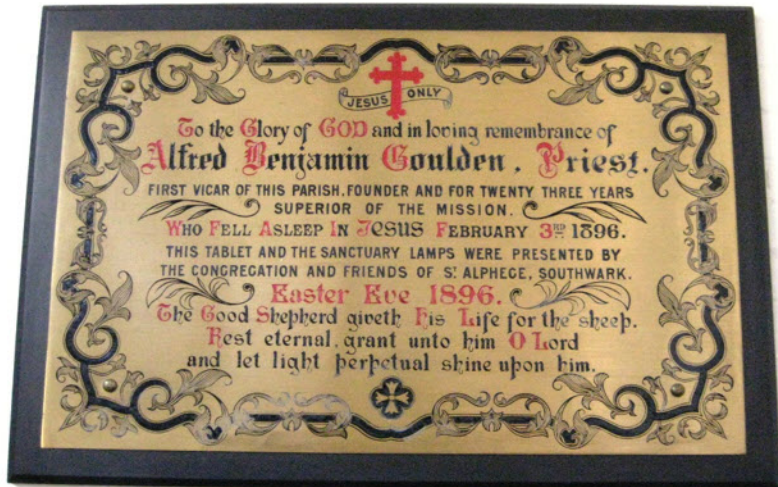 JESUS ONLY
To the Glory of GOD and in loving remembrance of
Alfred Benjamin Goulden, Priest.
FIRST VICAR OF THIS PARISH. FOUNDER AND FOR TWENTY THREE YEARS
SUPERIOR OF THE MISSION.
WHO FELL ASLEEP IN JESUS FEBRUARY 3RD 1896.
THIS TABLET AND THE SANCTUARY LAMPS WERE PRESENTED BY
THE CONGREGATION AND FRIENDS OF ST ALPHEGE, SOUTHWARK.
Easter Eve 1896.
The Good Shepherd giveth His Life for the sheep.
Rest eternal grant unto him O Lord
and let light perpetual shine upon him.